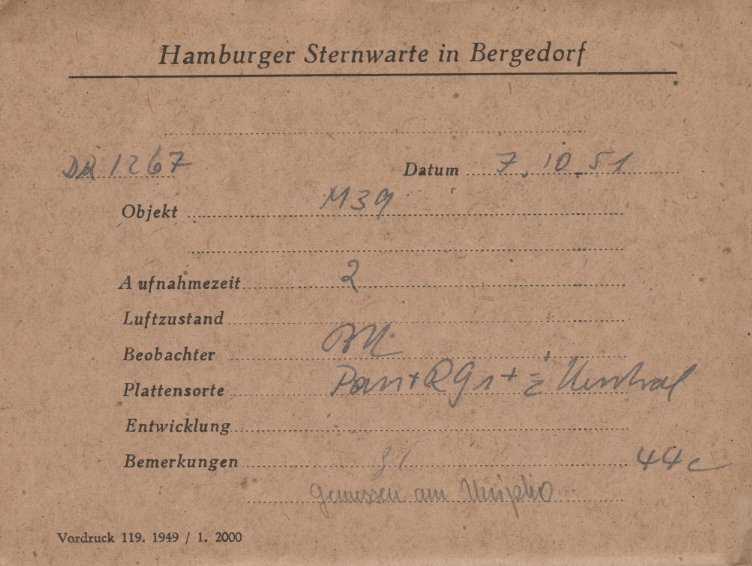 Hamburger Sternwarte in Bergedorf
DR 1267 Datum 7.10.51
Objekt M39
Aufnahmezeit 2
Luftzustand
Beobachter
Plattensorte Pan + RG1 +
Entwicklung
Bemerkungen 44c
Gemessen am
Vordruck 119. 1949 / 1. 2000